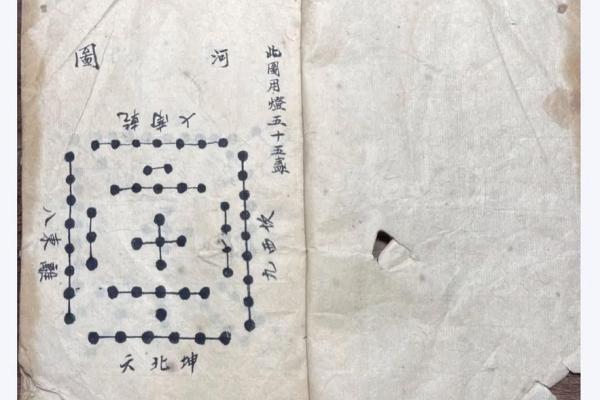 此圖用燈五十五盞
河圖
乾南火
坎西九
離東八
坤北六